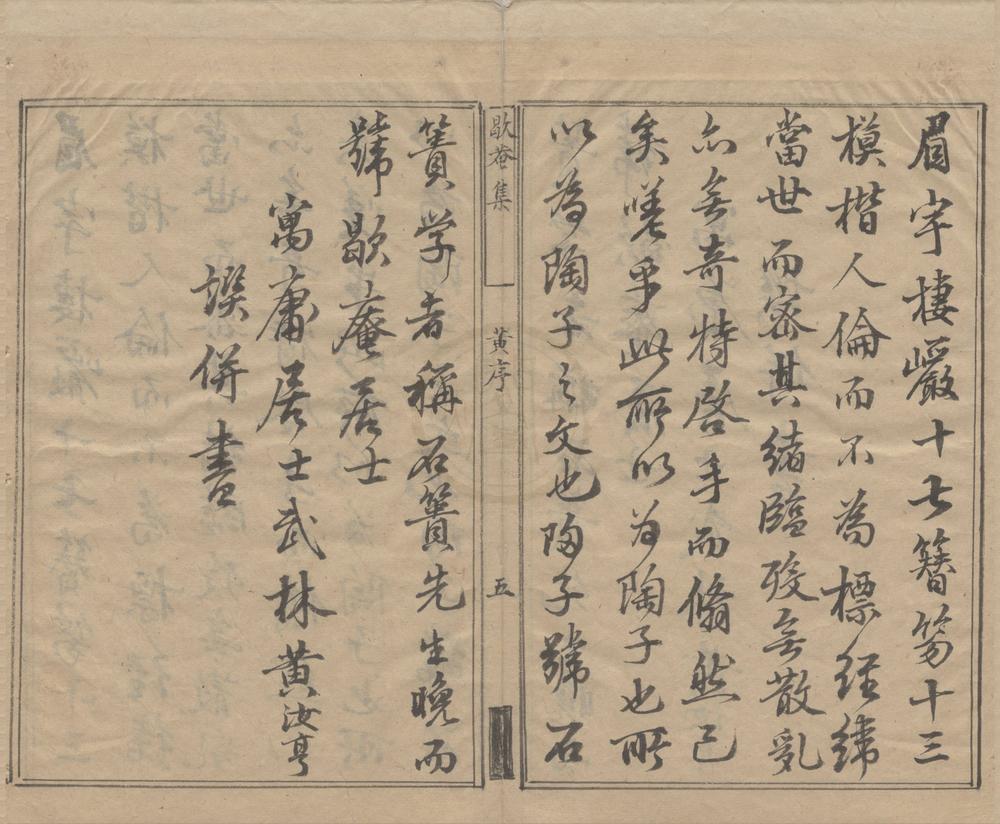 眉宇棲巖十七簪笏十三
模楷人倫而不為標経緯
當世而密其緒臨殁無散乱
亦無奇特啓手而翛然已
矣嗟乎此所以为陶子也所
以為陶子之文也陶子號石
歇菴集
黄序
五
簣学者稱石簣先生晚而
號歇庵居士
寓庸居士武林黄汝亨
譔併書